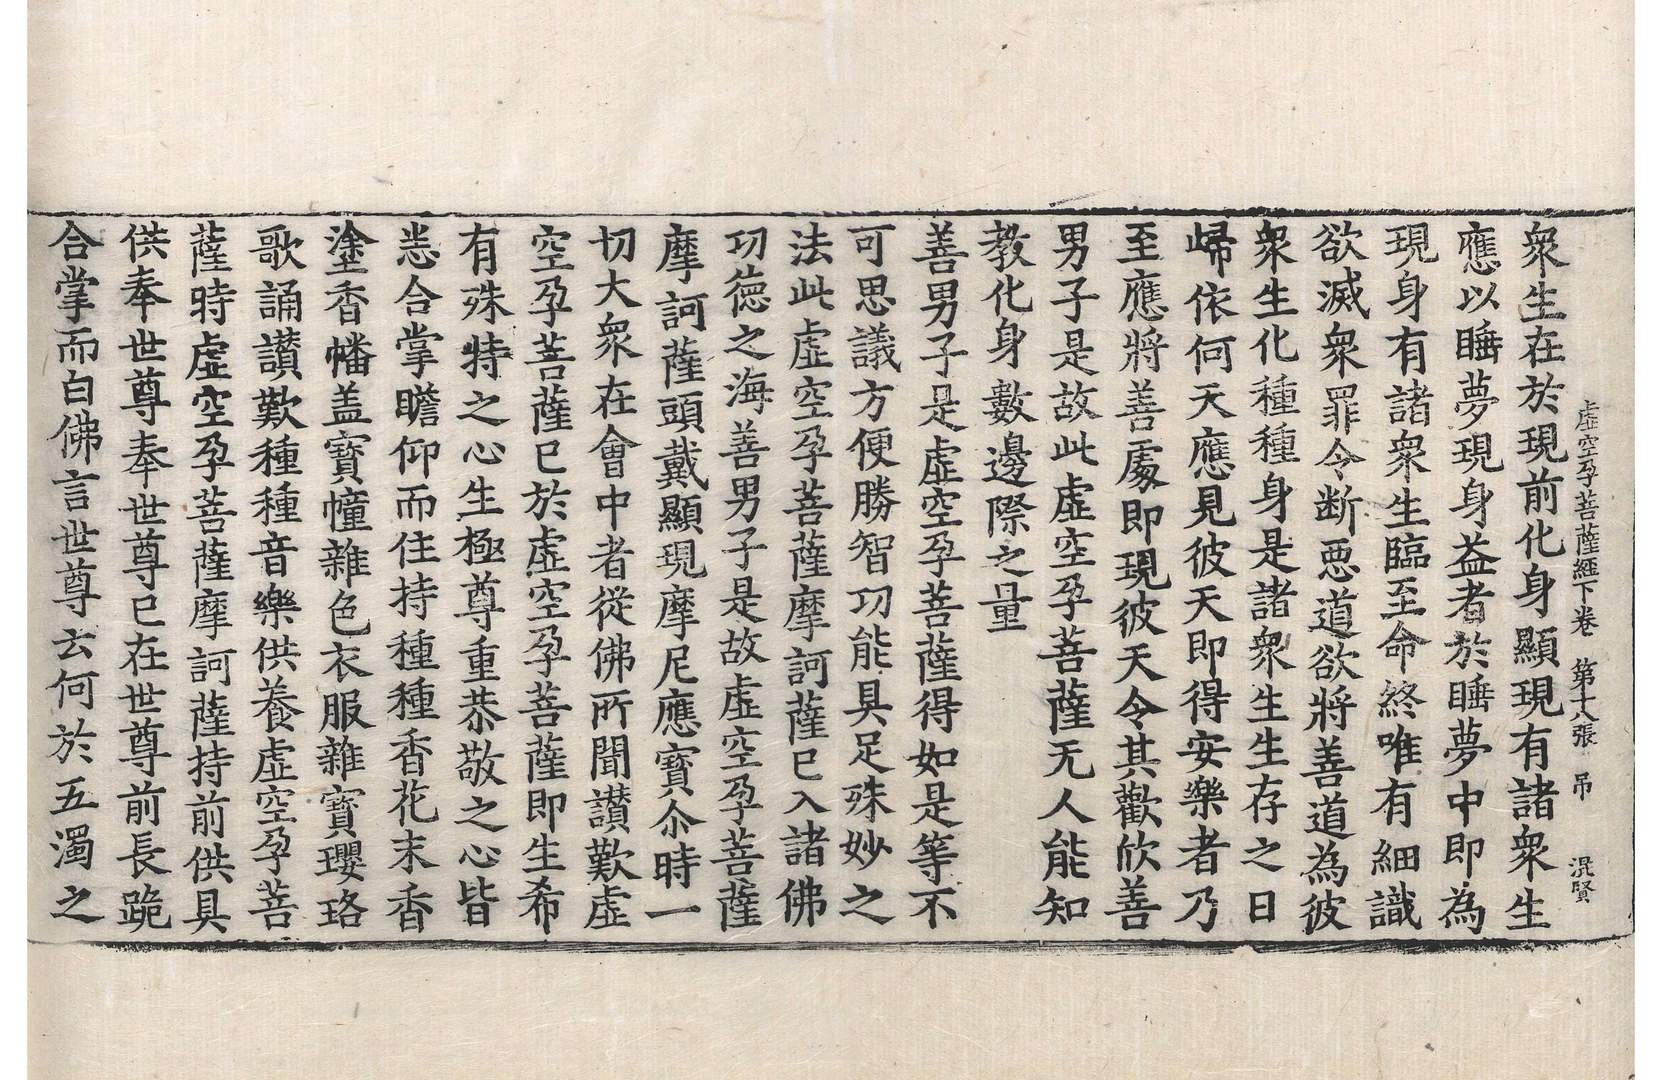 虛空孕菩薩經下卷 第十八張 吊 混賢
衆生在於現前化身顯現有諸衆生
應以睡夢現身益者於睡夢中即為
現身有諸衆生臨至命終唯有細識
欲滅衆罪令断惡道欲將善道為彼
衆生化種種身是諸衆生生存之日
歸依何天應見彼天即得安樂者乃
至應將善處即現彼天令其歡欣善
男子是故此虛空孕菩薩无人能知
教化身數邊際之量
善男子是虛空孕菩薩得如是等不
可思議方便勝智功能具足殊妙之
法此虛空孕菩薩摩訶薩已入諸佛
功徳之海善男子是故虛空孕菩薩
摩訶薩頭戴顯現摩尼應寶尒時一
切大衆在會中者從佛所聞讃歎虛
空孕菩薩已於虛空孕菩薩即生希
有殊特之心生極尊重恭敬之心皆
悉合掌瞻仰而住持種種香花末香
塗香幡盖寶幢雜色衣服雜寶瓔珞
歌誦讃歎種種音樂供養虛空孕菩
薩時虛空孕菩薩摩訶薩持前供具
供奉世尊奉世尊已在世尊前長跪
合掌而白佛言世尊云何於五濁之